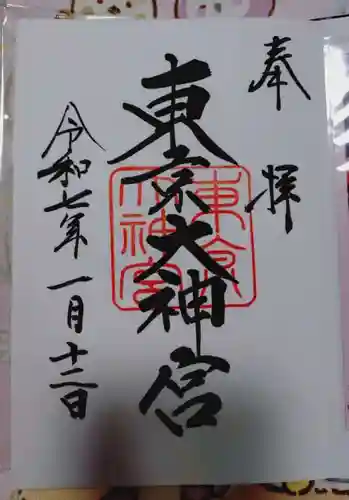 奉拝
東京大神宮
令和七年一月十二日
東京大神宮